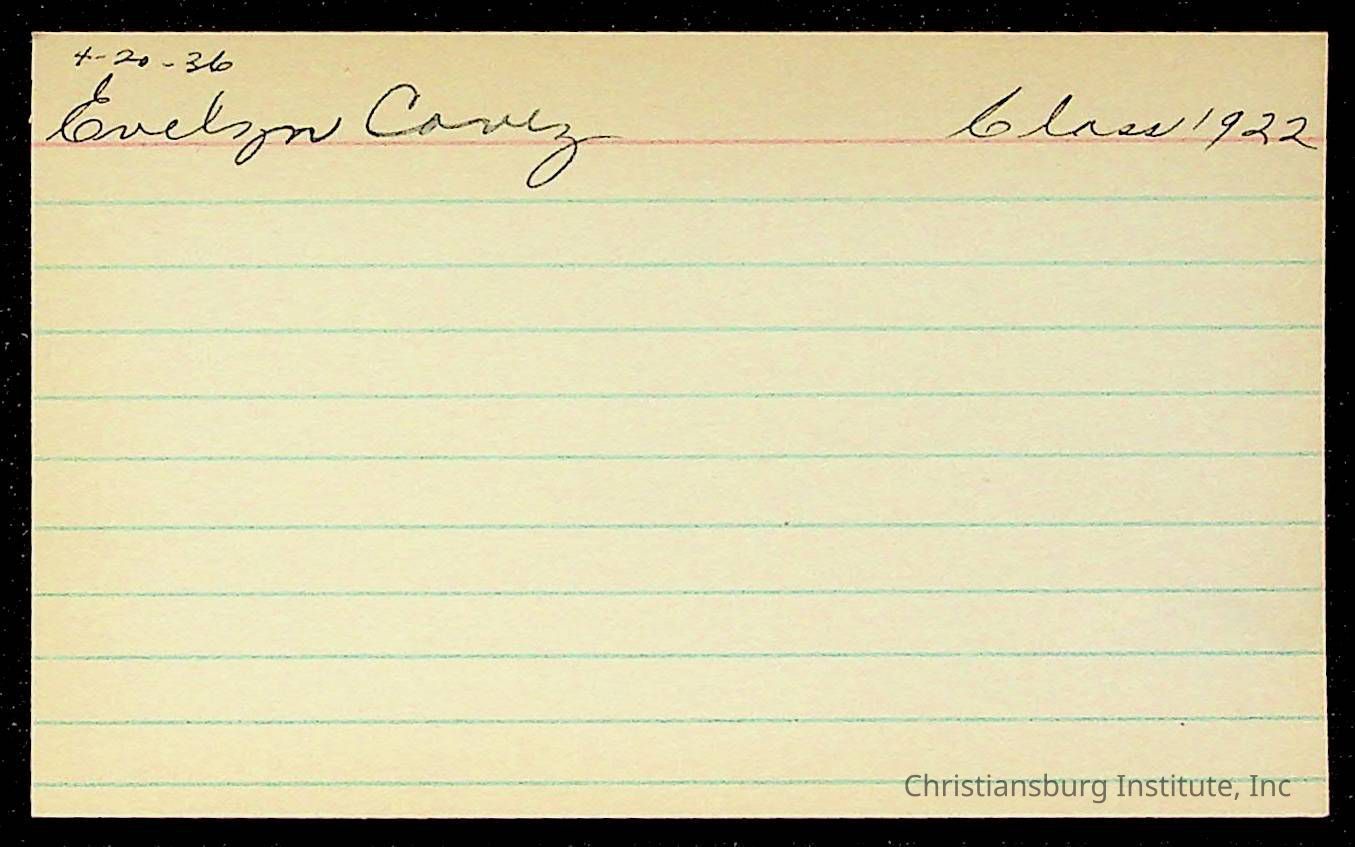 4-20-36
Evelyn Covey Class 1922
Christiansburg Institute, Inc